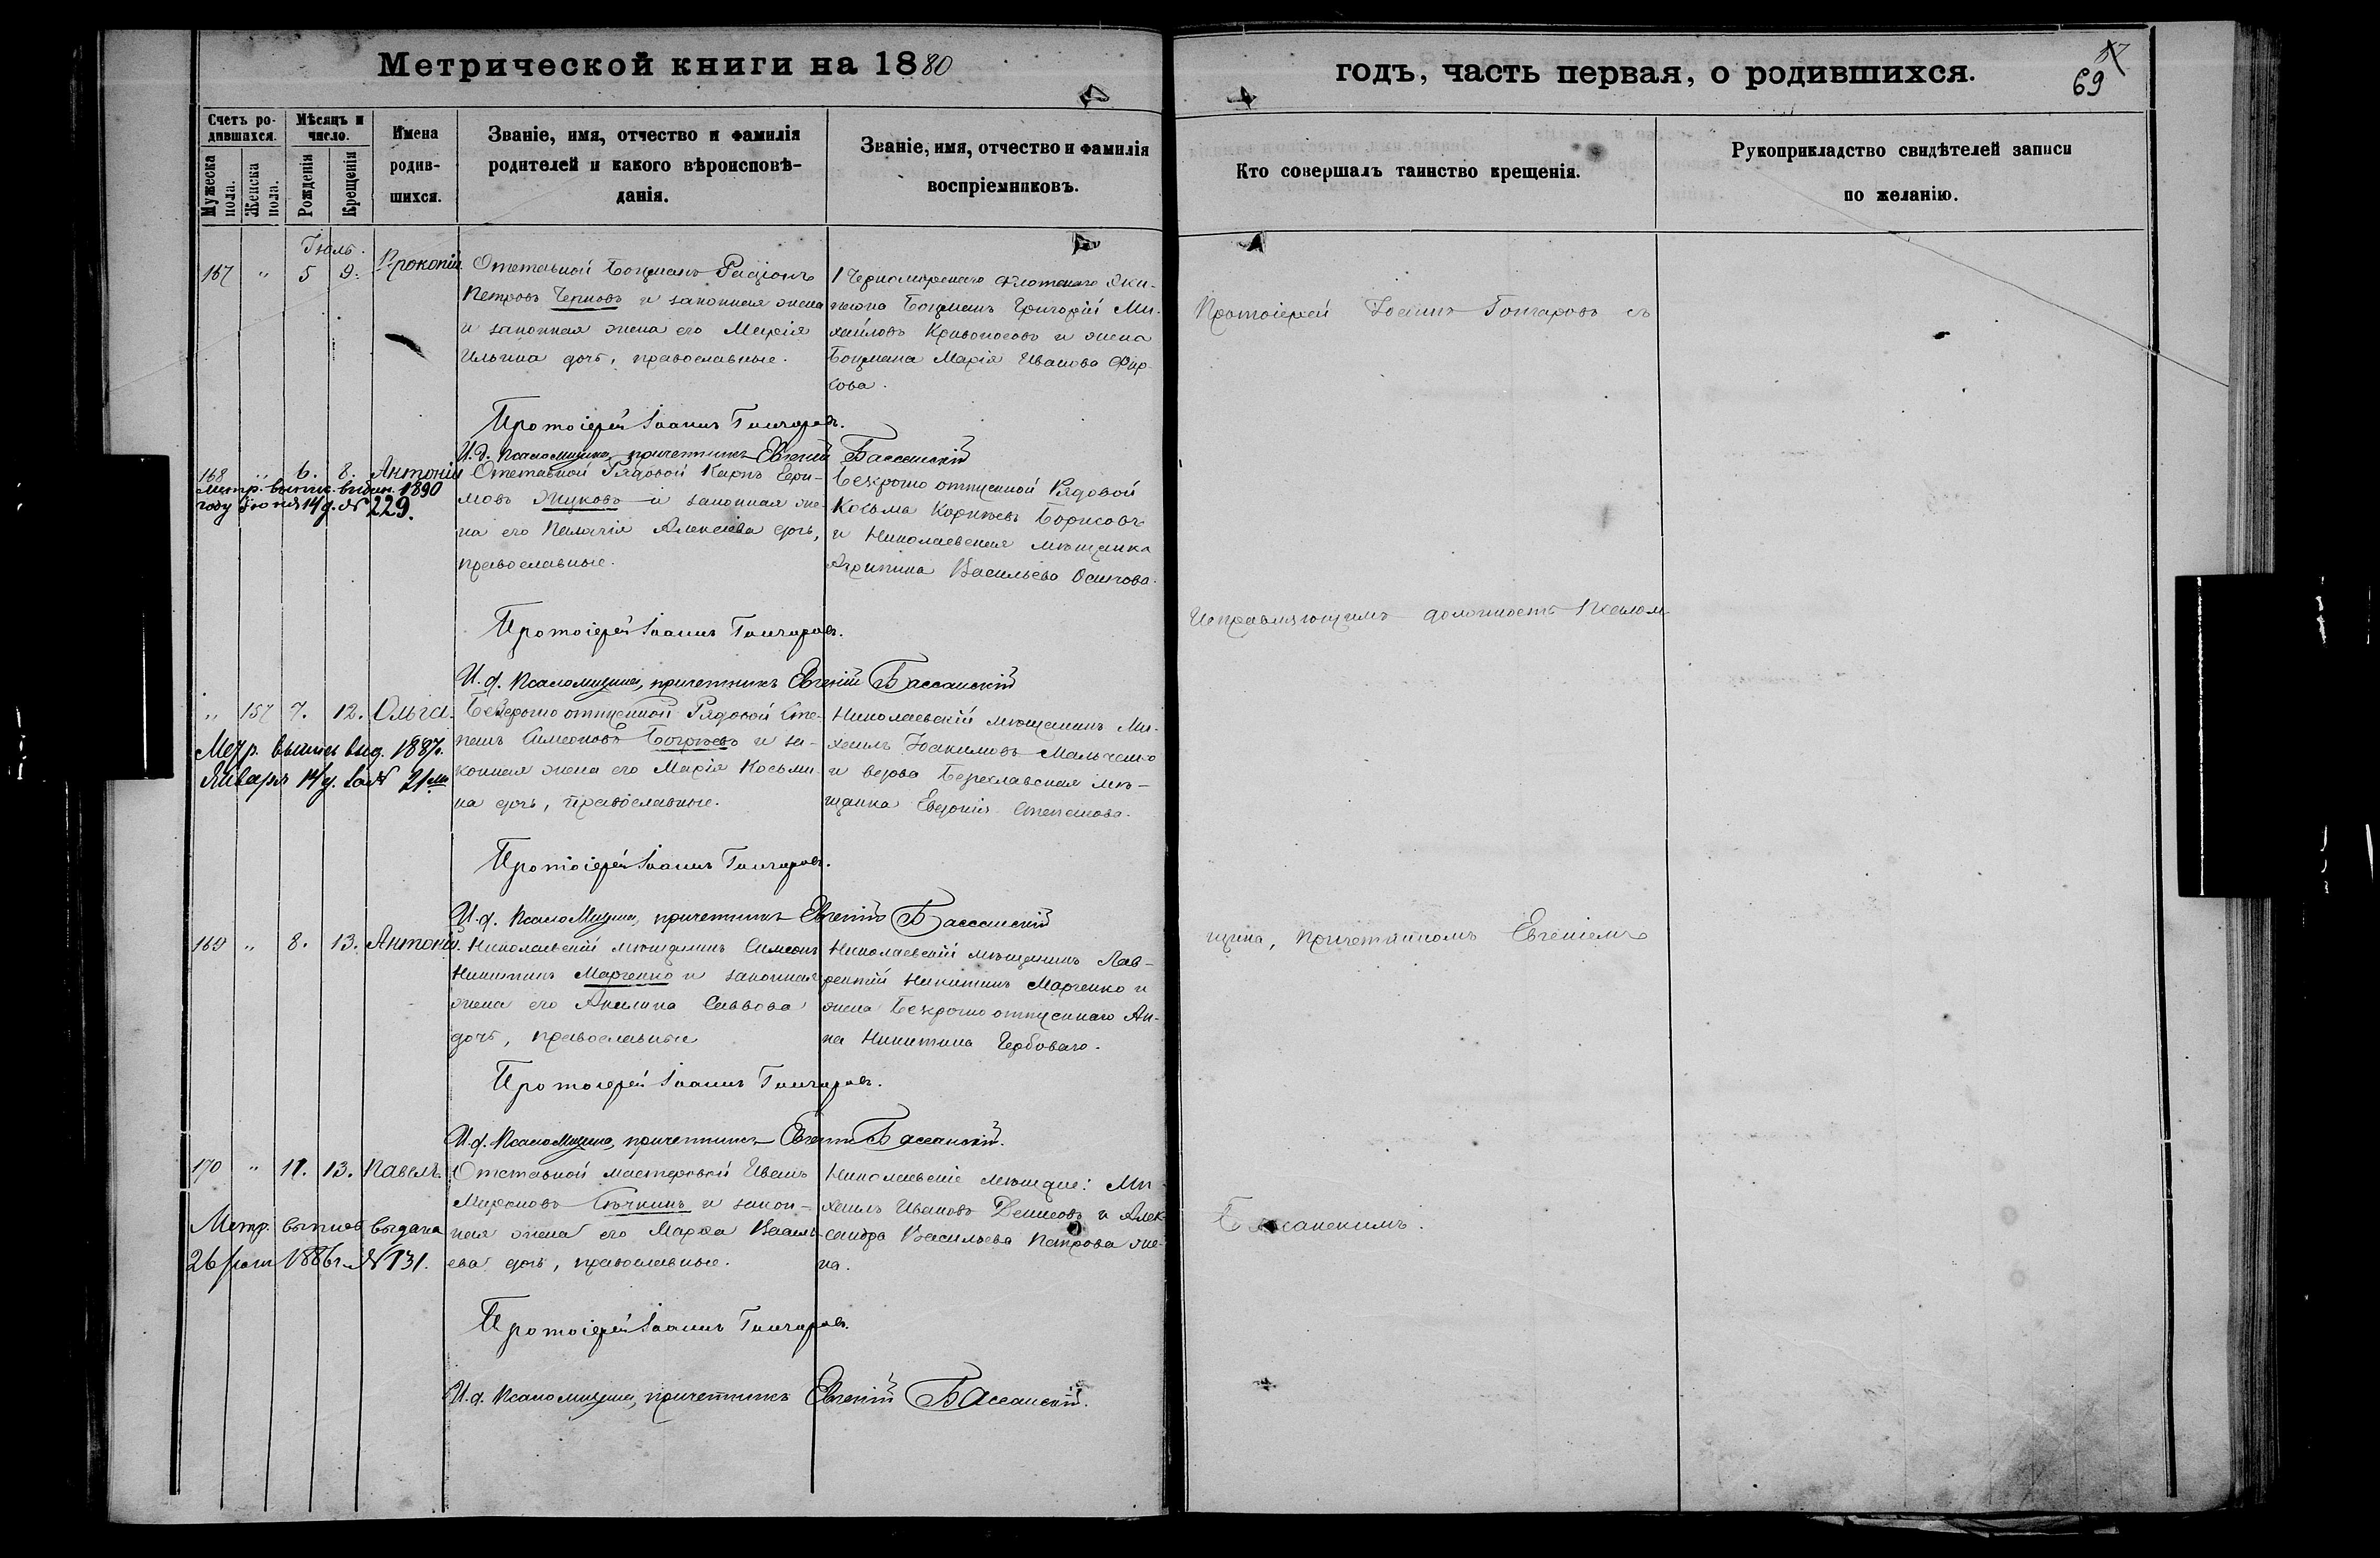 Метрической книги на 1880
годъ, часть первая, о родившихся.
69
Счетъ ро-
дившихся.
Мужеска пола.
Женска пола.
Мѣсяцъ и
число.
Рожденія
Крещенія
Имена
родив-
шихся.
Званіе, имя, отчество и фамилія
родителей и какого вѣроисповѣ-
данія.
Званіе, имя, отчество и фамилія
воспріемниковъ.
Кто совершалъ таинство крещенія.
Рукоприкладство свидѣтелей записи
по желанію.
Іюль.
167 " 5 9. Прокопій
Отставной Боцманъ Радіонъ
Петровъ Черновъ и законная жена
и законная жена его Марія
Ильина дочь, православные.
1 Черноморскаго Флотскаго Эки-
пажа Боцманъ Григорій Ми-
хайловъ Кривоносовъ и жена
Боцмана Марія Иванова Фир-
сова.
Протоіерей Іоаннъ Гончаровъ.
И. д. Псаломщика, причетникъ Евгеній Бассанскій
168 " 6. 8. Антоній
Метр. выпис. выдан. 1890
году Іюня 14 д. № 229.
Отставной Рядовой Карпъ
мовъ Жуковъ и законная же-
на его Пелагія Алексѣева дочь,
православные.
Безсрочно отпускной Рядовой
Косьма Корнѣевъ Борисовъ
и Николаевская мѣщанка
Агрипина Васильева Осипова.
Протоіерей Іоаннъ Гончаровъ.
И. д. Псаломщика, причетникъ Евгеній Бассанскій
" 157 7. 12. Ольга.
Метр. выпись выд. 1887 г.
Января 14 д. за № 21мъ
Безсрочно отпускной Рядовой Сте-
панъ Симеоновъ и за-
конная жена его Марія Косьми-
на дочь, православные.
Николаевскій мѣщанинъ Ми-
хаилъ Іоакимовъ Мальченко
и вдова Бериславская мѣ-
щанка Евдокія Степанова.
Протоіерей Іоаннъ Гончаровъ.
И. д. Псаломщика, причетникъ Евгеній Бассанскій
169 " 8. 13. Антоній.
Николаевскій мѣщанинъ Симеонъ
Никитинъ Марченко и законная
жена его Акилина Саввова
дочь, православные
Николаевскій мѣщанинъ Лав-
рентій Никитинъ Марченко и
жена Безсрочно отпускнаго Ан-
на Никитина Герболаго.
Протоіерей Іоаннъ Гончаровъ.
И. д. Псаломщика, причетникъ Евгеній Бассанскій.
170 " 11. 13. Павелъ.
Метр. выпись выдана
26 1886 г. № 131.
Отставной мастеровой Иванъ
Мироновъ Сѣчкинъ и закон-
ная жена его Марѳа Василь-
ева дочь, православные.
Николаевскіе мѣщане: Ми-
хаилъ Ивановъ Денисовъ и Алек-
сандра Васильева Петрова же-
на.
Протоіерей Іоаннъ Гончаровъ.
И. д. Псаломщика, причетникъ Евгеній Бассанскій.
Протоіерей Іоаннъ Гончаровъ съ
Исправляющимъ должность Псалом-
щика, Причетникомъ Евгеніемъ
Бассанскимъ.